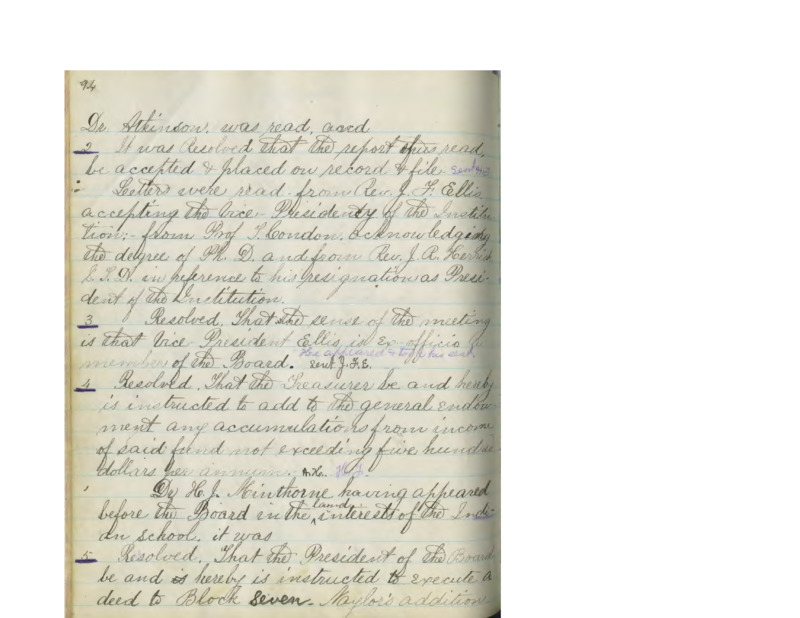 94
Dr Atkinson. was read, and
2 It was Resolved that the report thus read,
be accepted & placed on record & file.
Letters were read from Rev. J. F. Ellis,
accepting the Vice-Presidency of the Institu-
tion;- from Prof T. Condon, acknowledging
the degree of Ph. D. and from Rev. J. R. Herrick
in reference to his resignation as Presi-
dent of the Institution.
3 Resolved, That the sense of the meeting
is that Vice President Ellis is Ex-officio a
He appeared & took his seat.
member of the Board. Sent J. F. E.
4 Resolved, That the Treasurer be and hereby
is instructed to add to the general endow-
ment any accumulations from income
of said fund not exceeding five hundred
dollars per annum. A.H.
Dr H. J. Minthorne having appeared
before the Board in the land interests of the Indi-
an school, it was
5 Resolved, That the President of the Board
be and is hereby is instructed to execute a
deed to Block Seven. Naylor's addition